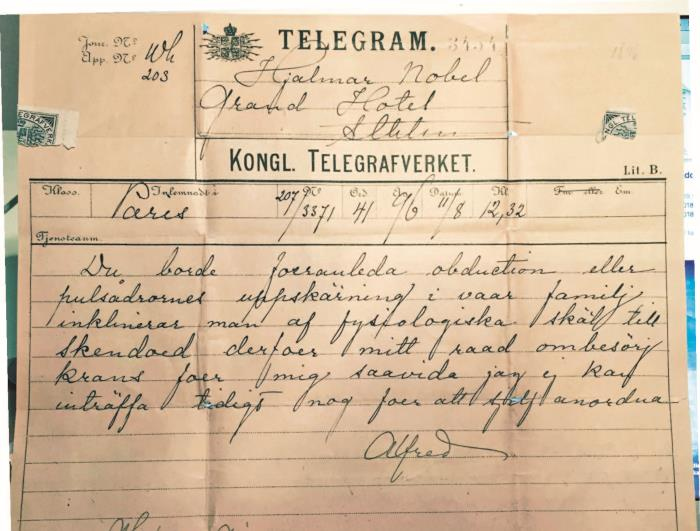 Jour. Nº
App. Nº Wh
203
TELEGRAM. 3454
Hjalmar Nobel
Grand Hotel
Sthlm
KONGL. TELEGRAFVERKET.
Lit. B.
Klass. Inlemnadt i Nº Ord Datum Kl. Fm eller Em.
Paris 207/3371 41 9/6 11/8 12,32
Tjensteanm.
Du borde foerranleda obduction eller
pulsådrornes uppskärning i vaar familj
inklinerar man af fysiologiska skäl till
skendoed derfoer mitt raad ombesörj
krans foer mig saavida jag ej kan
inträffa tidigt nog foer att sjelf anordna
Alfred